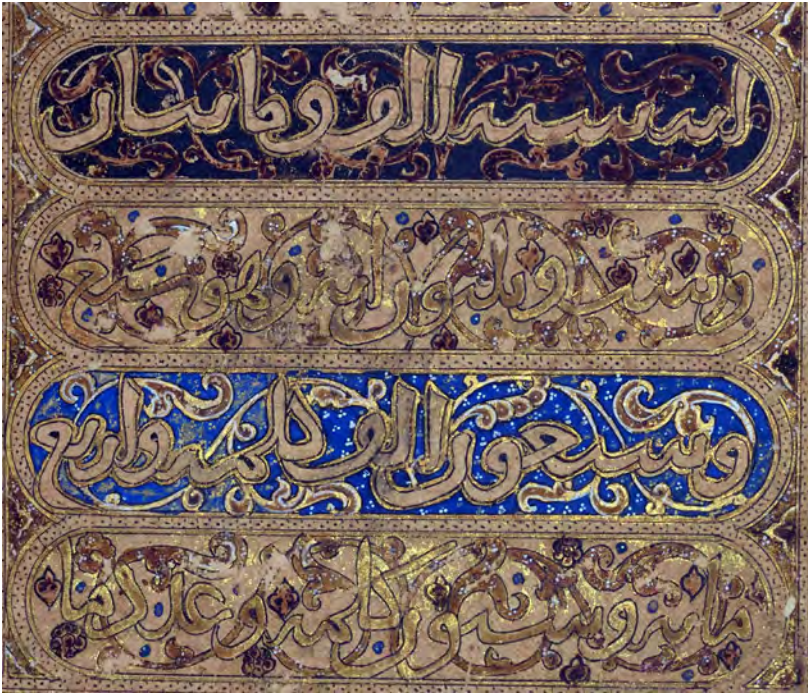 ايه سته الف ومايتان
وست وثلثون ايه وهو سبع
وسبعون الف كلمه واربع
مايه وستون كلمه وعدد ما